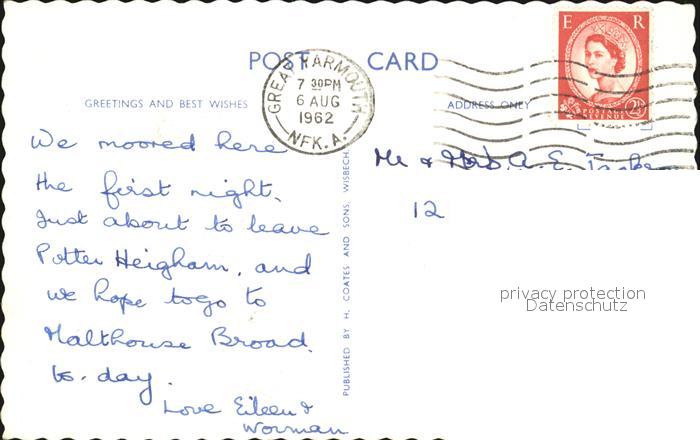 E R
POSTAGE
REVENUE
2½
POST CARD
GREAT YARMOUTH
7 30PM
6 AUG
1962
NFK. A.
GREETINGS AND BEST WISHES
ADDRESS ONLY
We moored here
the first night.
Just about to leave
Potter Heigham, and
we hope to go to
Malthouse Broad.
to-day.
Love Eileen &
Norman
PUBLISHED BY H. COATES AND SONS, WISBECH.
Mr & Mrs A. E.
12
privacy protection
Datenschutz